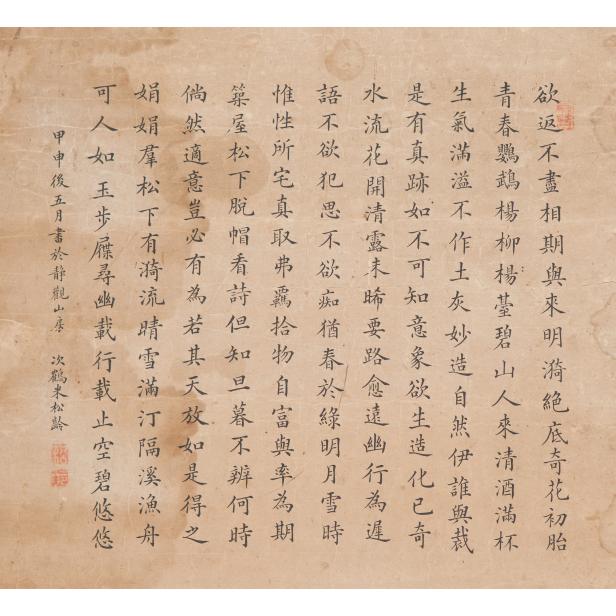 欲返不盡相期與來明漪絕底奇花初胎
青春鸚鵡楊柳楊臺碧山人來清酒滿杯
生氣滿溢不作土灰妙造自然伊誰與裁
是有真跡如不可知意象欲生造化已奇
水流花開清露未晞要路愈遠幽行為遲
語不欲犯思不欲痴猶春於綠明月雪時
惟性所宅真取弗羈拾物自富與率為期
築屋松下脫帽看詩但知旦暮不辨何時
倘然適意豈必有為若其天放如是得之
娟娟羣松下有漪流晴雪滿汀隔溪漁舟
可人如玉步屧尋幽載行載止空碧悠悠
甲申後五月書於靜觀山房 次鶴朱松齡